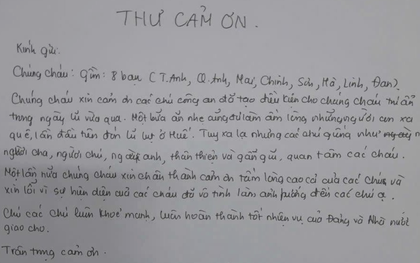 THƯ CẢM ƠN.
Kính gửi:
Chúng cháu: Gồm: 8 bạn (T.Anh, Q.Anh, Mai, Chinh, Sơn, Hà, Linh, Đan).
Chúng cháu xin cảm ơn các chú công an đã tạo điều kiện cho chúng cháu trú ẩn
trong ngày lũ vừa qua. Một bữa ăn nhẹ cũng đủ làm ấm lòng những người con xa
quê, lần đầu tiên đón lũ lụt ở Huế. Tuy xa lạ nhưng các chú giống như
người cha, người chú, người anh, thân thiện và gần gũi, quan tâm các cháu.
Một lần nữa chúng cháu xin chân thành cảm ơn tấm lòng cao cả của các chú và
xin lỗi vì sự hiện diện của các cháu đã vô tình làm ảnh hưởng đến các chú ạ.
Chúc các chú luôn khoẻ mạnh, luôn hoàn thành tốt nhiệm vụ của Đảng và Nhà nước
giao cho.
Trân trọng cảm ơn.